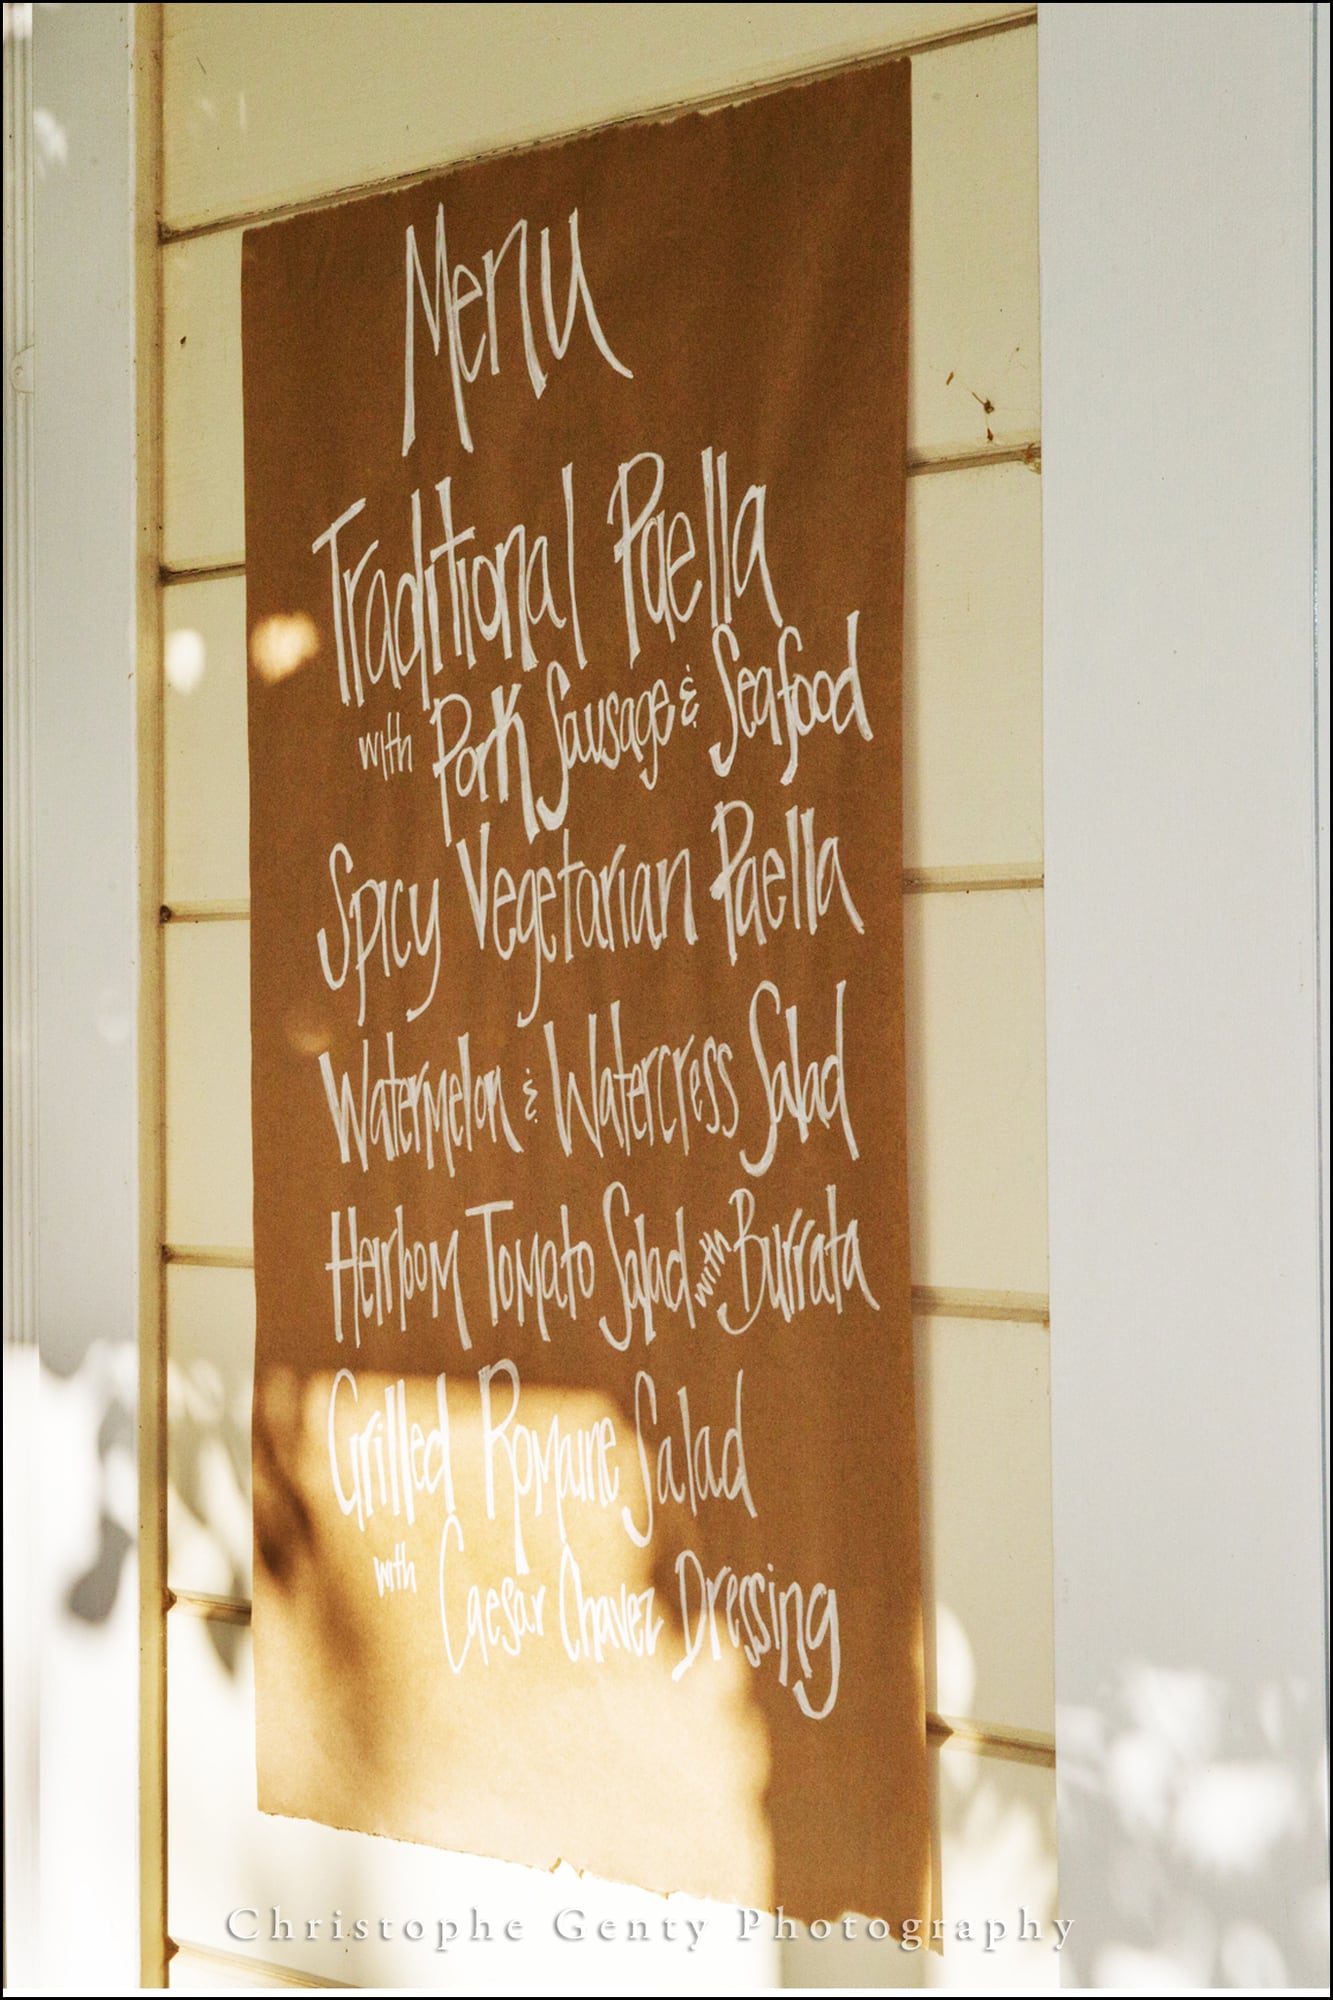 Menu
Traditional Paella
with Pork Sausage & Seafood
Spicy Vegetarian Paella
Watermelon & Watercress Salad
Heirloom Tomato Salad with Burrata
Grilled Romaine Salad
with Caesar Chavez Dressing
Christophe Genty Photography